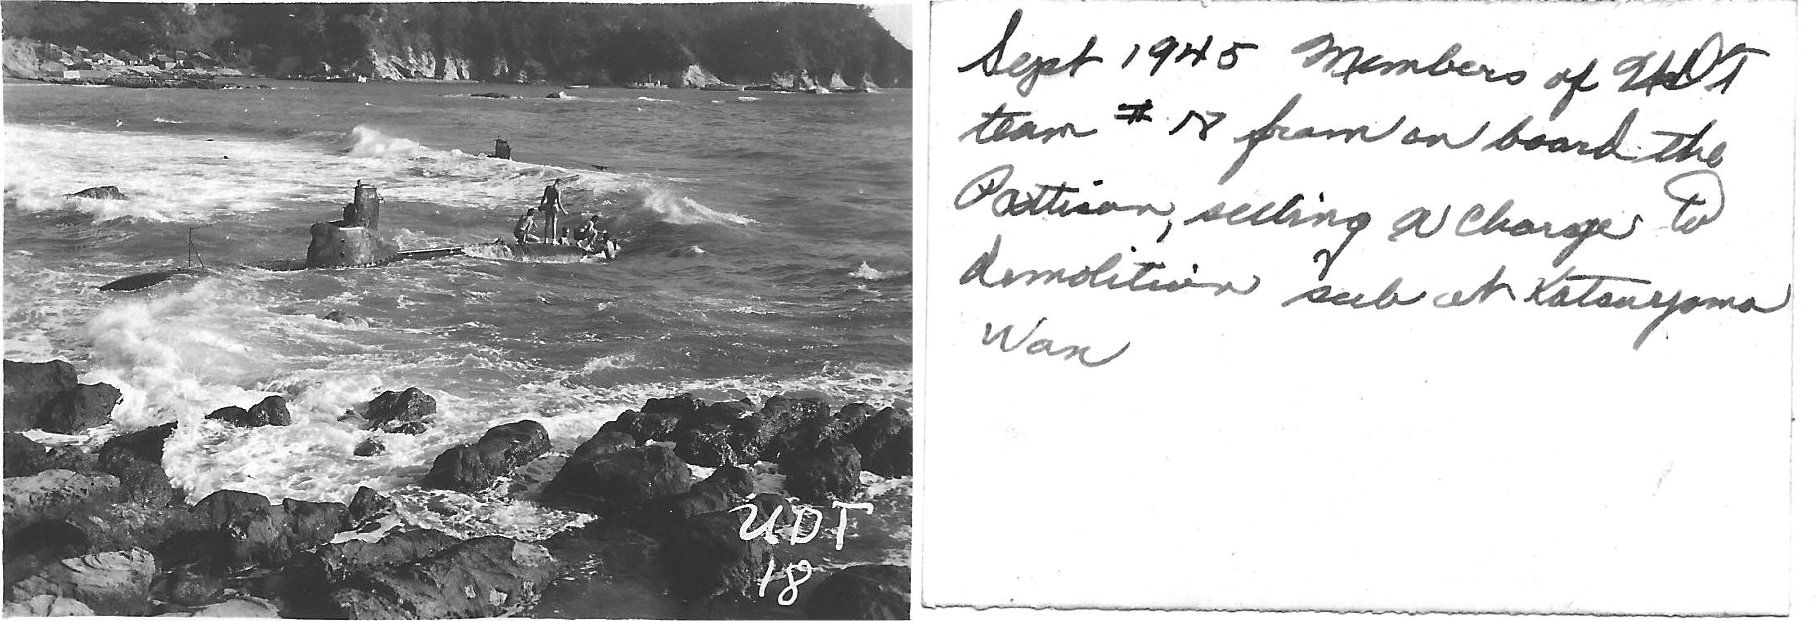 UDT
18
Sept 1945 Members of UDT
team # 18 from on board the
Pattison, setting a charge to
demolition sub at Katsuyama
Wan